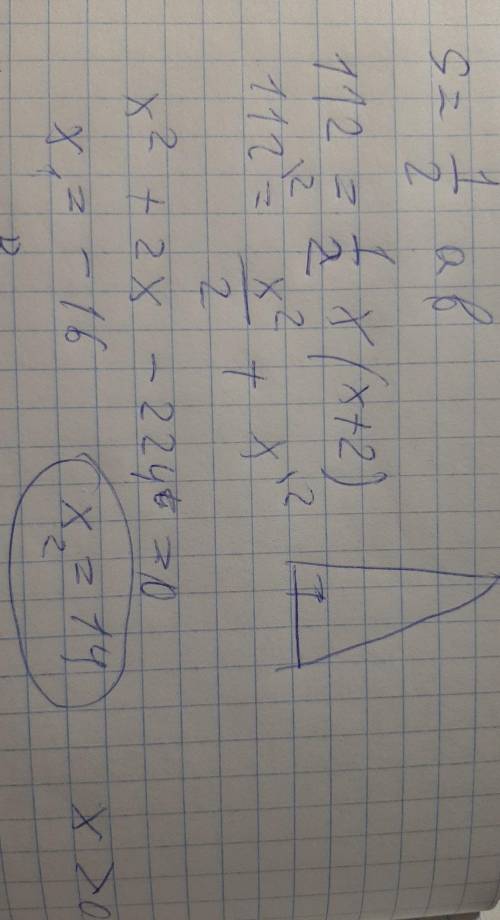 S = 1/2 ab
112 = 1/2 x(x+2)
112^{\2} = x²/2 + x^{\2}
x² + 2x - 224 = 0
x₁ = -16 x₂ = 14 x > 0